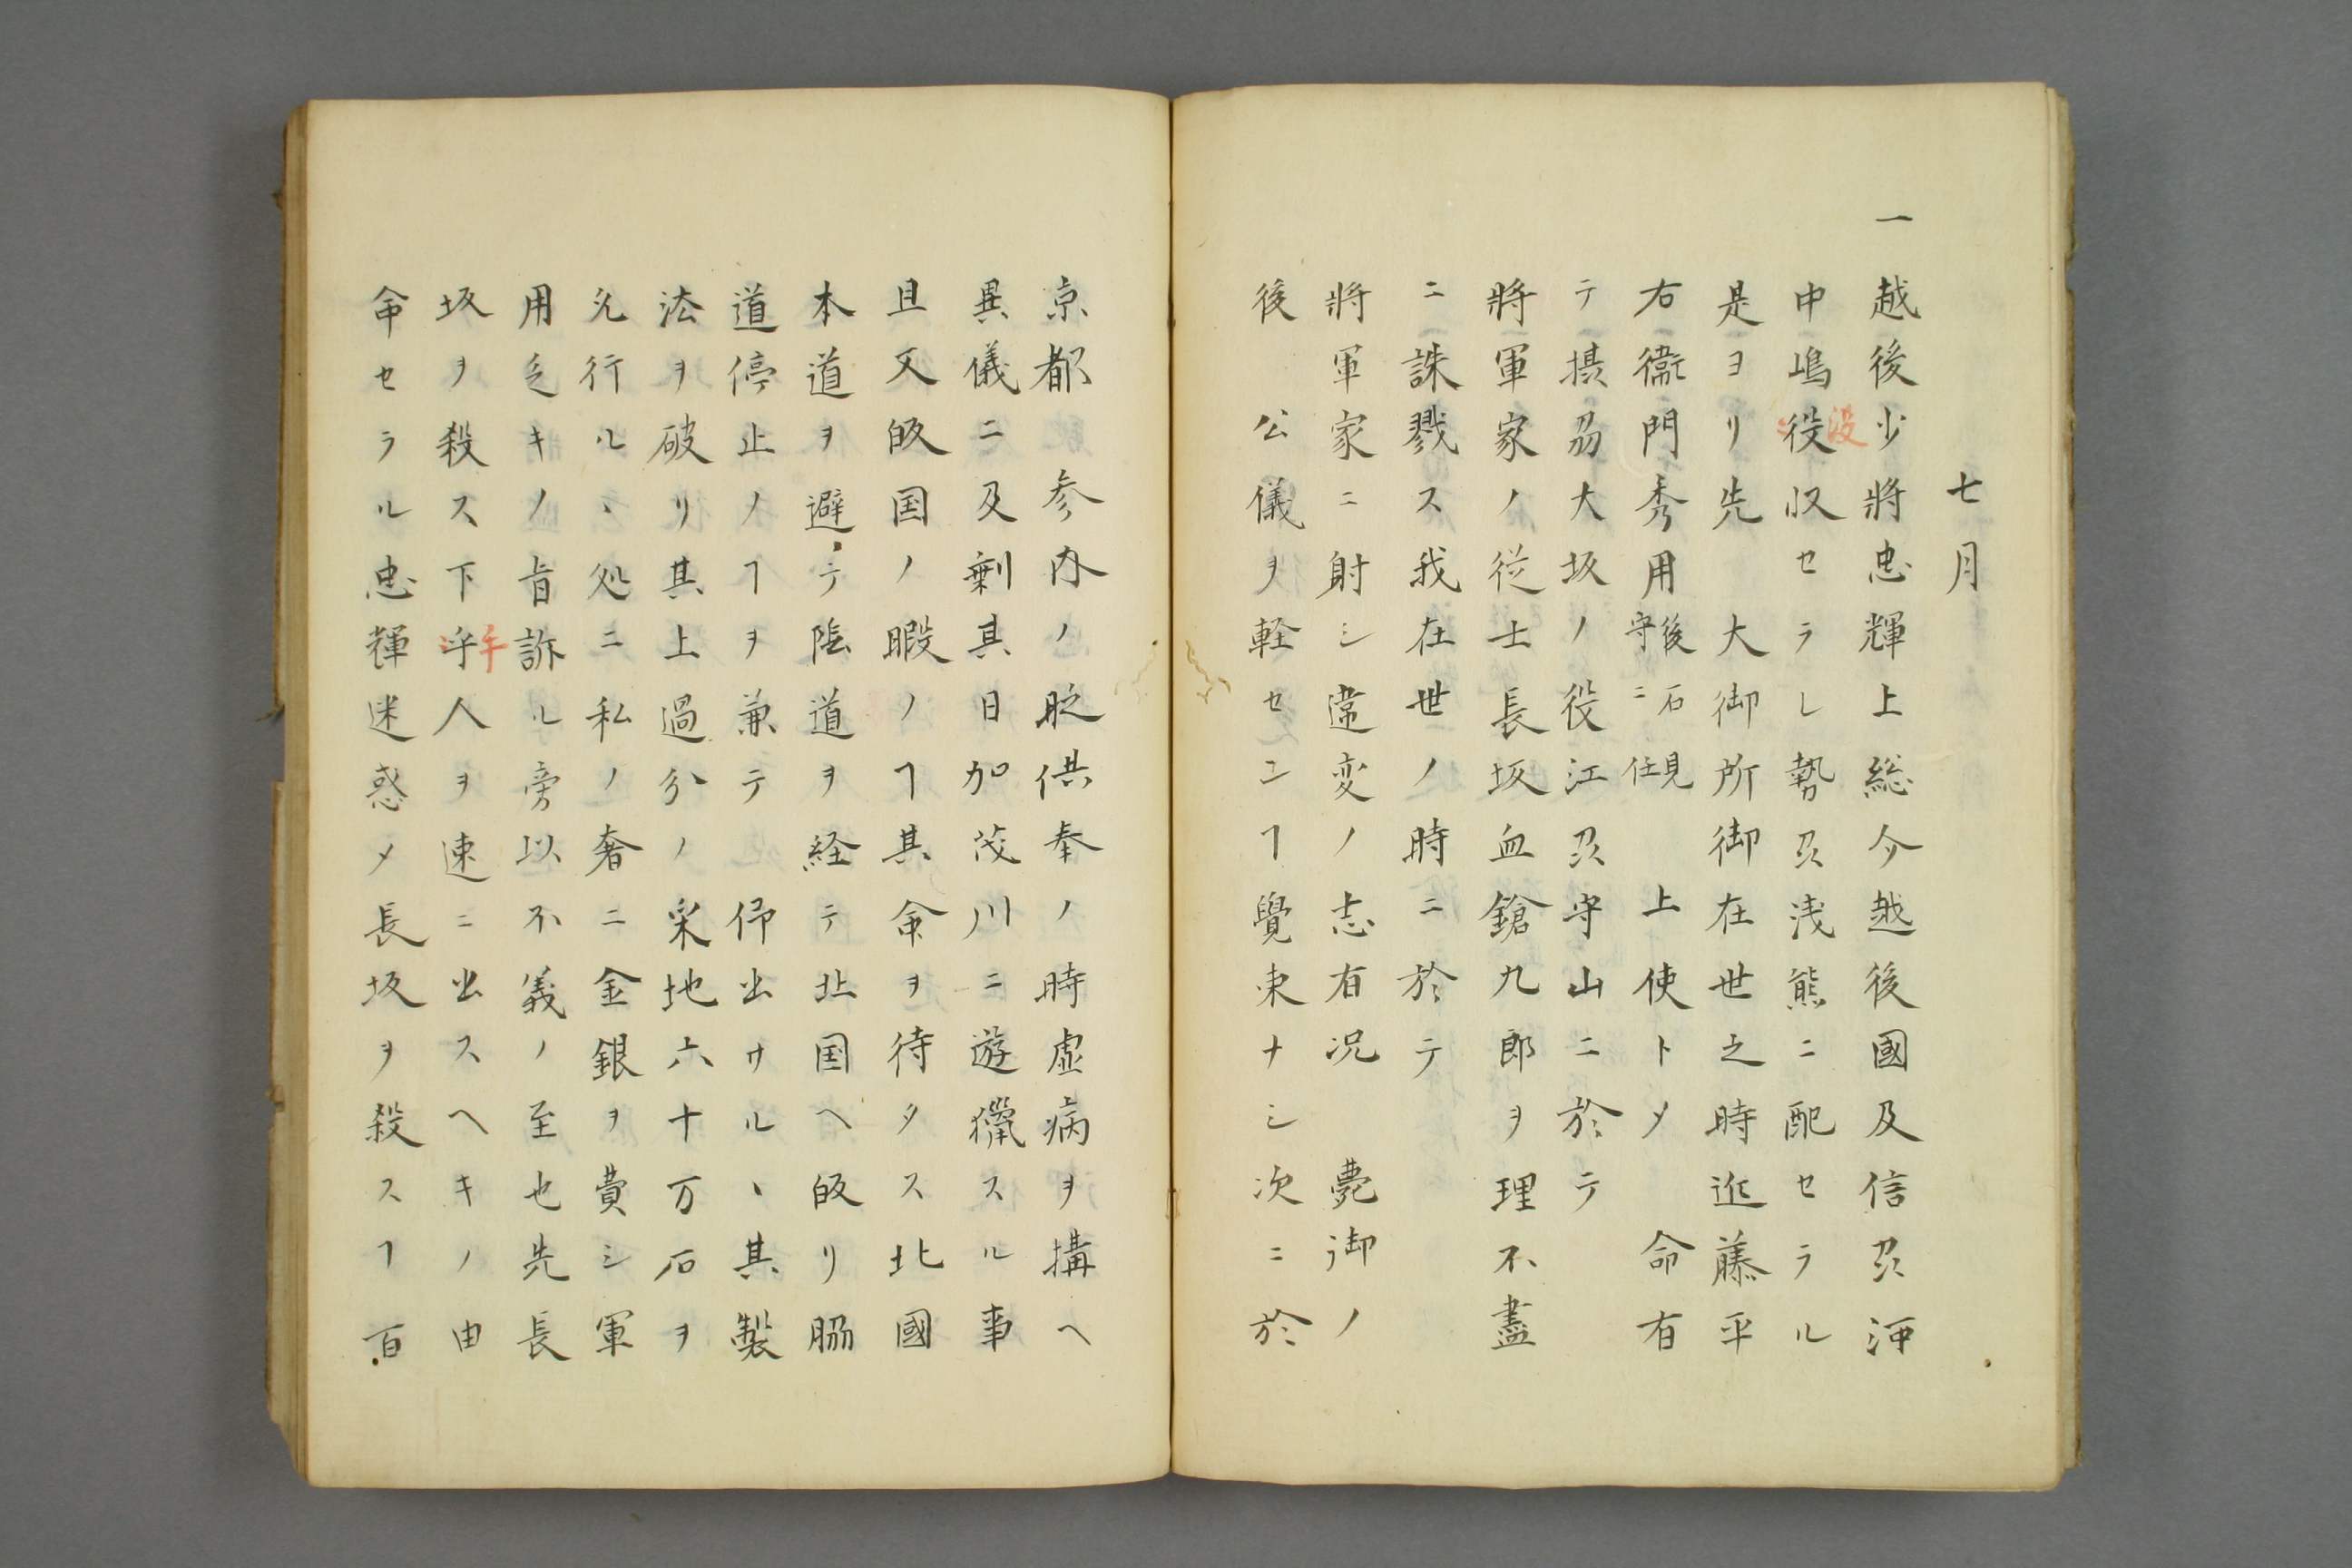 七月
一越後少將忠輝上総介越後國及信刕河
中嶋役収セラレ勢刕浅熊ニ配セラル
没
是ヨリ先　大御所御在世之時近藤平
右衞門秀用後石見守ニ任　上使トメ　命有
テ摂刕大坂ノ役江刕守山ニ於テ
將軍家ノ従士長坂血鎗九郎ヲ理不盡
ニ誅戮ス我在世ノ時ニ於テ
將軍家ニ射シ違変ノ志有况　薨御ノ
後　公儀ヲ軽センヿ覺束ナシ次ニ於
京都　参内ノ眤供奉ノ時虚病ヲ搆ヘ
異儀ニ及剰其日加茂川ニ遊獵スル事
且又皈国ノ暇ノヿ其命ヲ待タス北國
本道ヲ避テ陰道ヲ経テ北国ヘ皈リ脇
道停止ノヿヲ兼テ仰出サルヽ其製
法ヲ破リ其上過分ノ采地六十万石ヲ
充行ルヽ処ニ私ノ奢ニ金銀ヲ費シ軍
用乏キノ旨訴ル旁以不義ノ至也先長
坂ヲ殺ス下乎人ヲ速ニ出スヘキノ由
手
命セラル忠輝迷惑メ長坂ヲ殺スヿ百